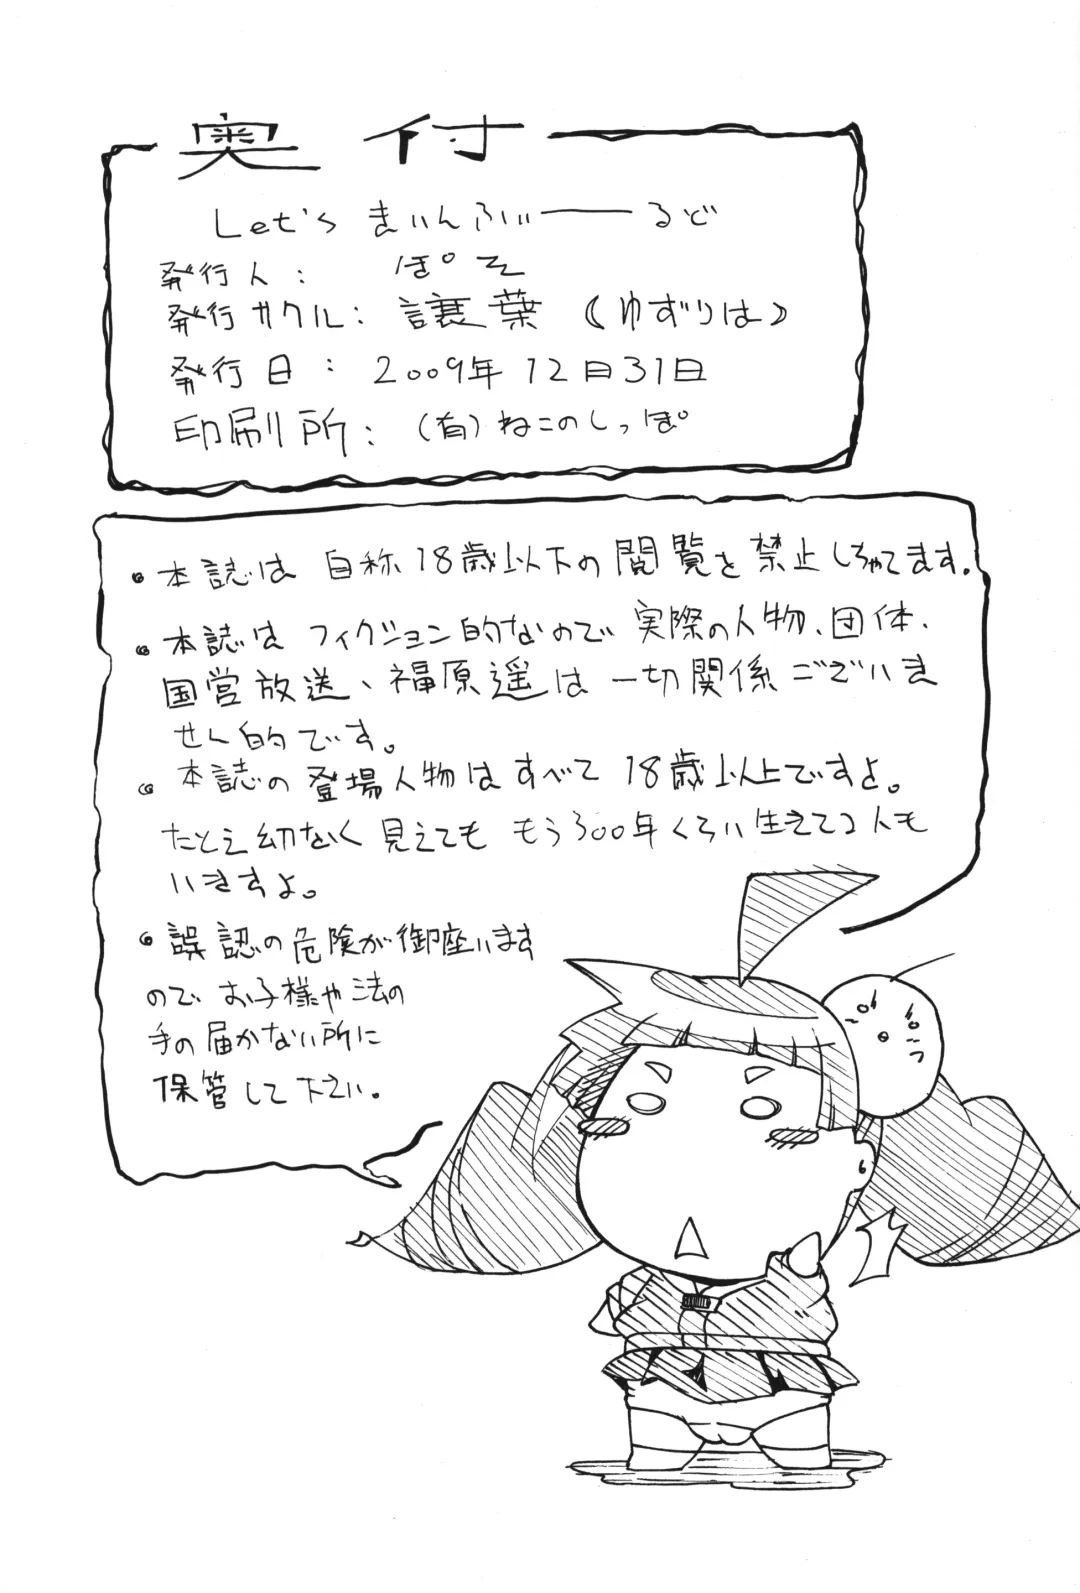 奥付
Let's まいんふぃーーるど
発行人: ぽそ
発行サクル: 譲葉 (ゆずりは)
発行日: 2009年12月31日
印刷所: (有)ねこのしっぽ
・本誌は 自称18歳以下の閲覧を禁止しちゃてます。
・本誌は フィクション的なので 実際の人物、団体、
国営放送、福原遥は 一切関係ございま
せん的です。
・本誌の登場人物はすべて 18歳以上ですよ。
たとえ幼なく見えても もう300年くらい生きてる人も
いますよ。
・誤認の危険が御座います
ので お子様や法の
手の届かない所に
保管して下さい。